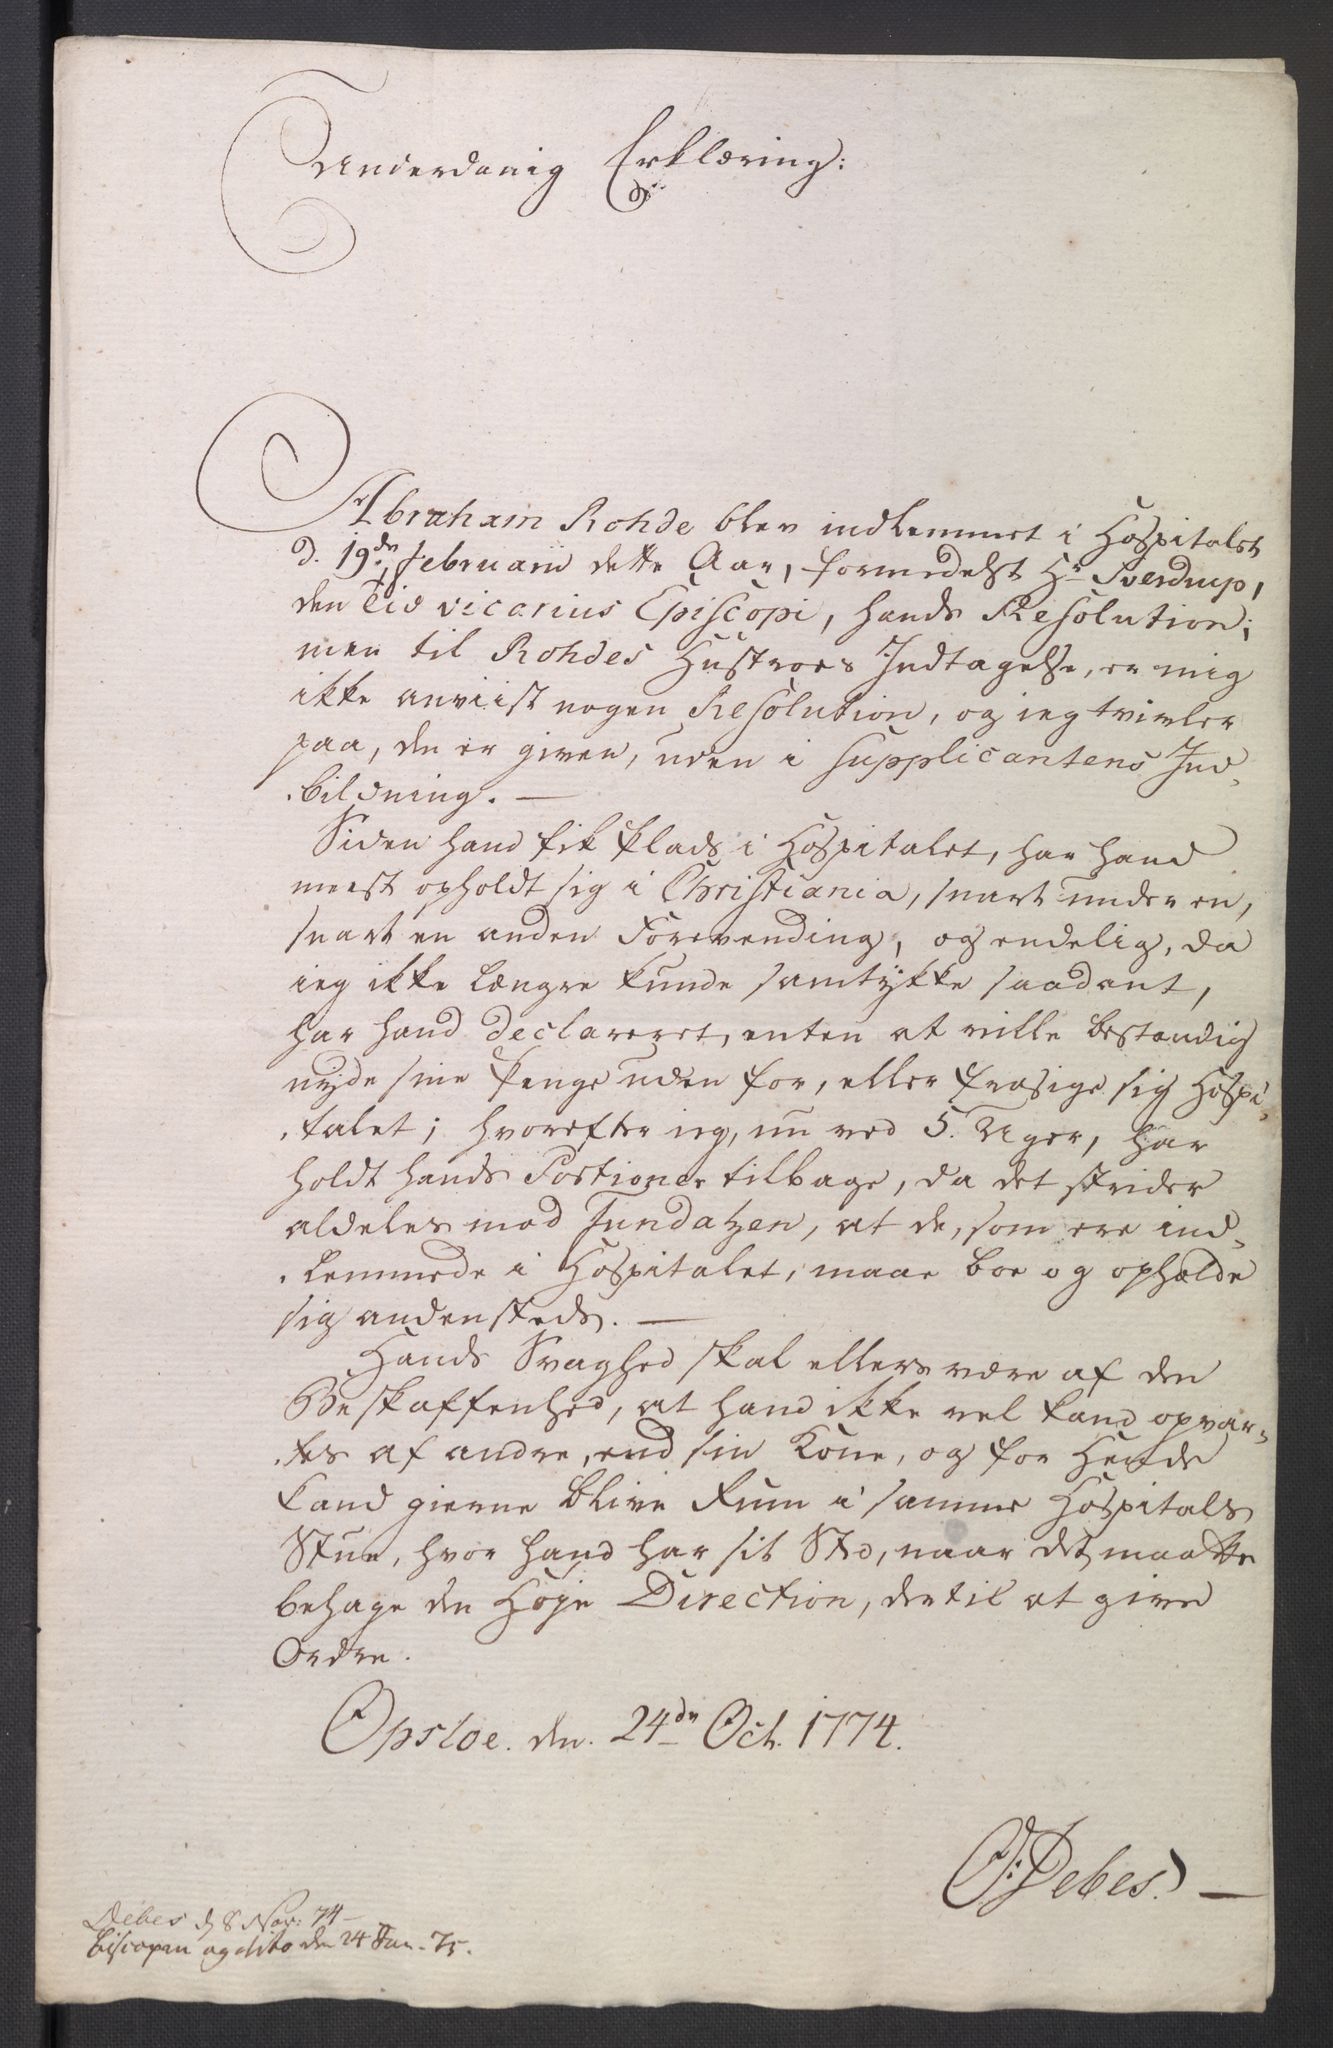 Underdanig Erklæring:
Abraham Rohde blev indlemmet i Hospitalet
d. 19de Februarii dette Aar, formedelst Hr Sverdrup,
den Tid vicarius Episcopi, hands Resolution;
men til Rohdes Hustroes Indtagelse, er mig
ikke anviist nogen Resolution, og ieg tvivler
paa, den er given, uden i Supplicantens Ind-
-bildning. —
Siden hand fik Plads i Hospitalet, har hand
meest opholdt sig i Christiania, snart under en,
snart en anden Forevending, og endelig, da
ieg ikke længre kunde samtykke saadant,
har hand declareret, enten at ville bestandig
nyde sine Penge uden for, eller frasige sig Hospi-
-talet; hvorefter ieg, nu ved 5. Uger, har
holdt hands Portioner tilbage, da det strider
aldeles mod Fundatzen, at de, som ere ind-
-lemmede i Hospitalet, maae boe og opholde
sig andensteds. —
Hands Svaghed skal ellers være af den
Beskaffenhed, at hand ikke vel kand opvar-
-tes af andre, end sin Kone, og for Hende
kand gierne blive Rum i samme Hospitals
Stue, hvor hand har sit Sted, naar det maatte
behage den Høje Direction, der til at give
Ordre.
Opsloe. den. 24de Oct. 1774.
O: Debes. —
Debes d 8 Nov: 74 —
biscopen og dito den 24 Jan. 75.